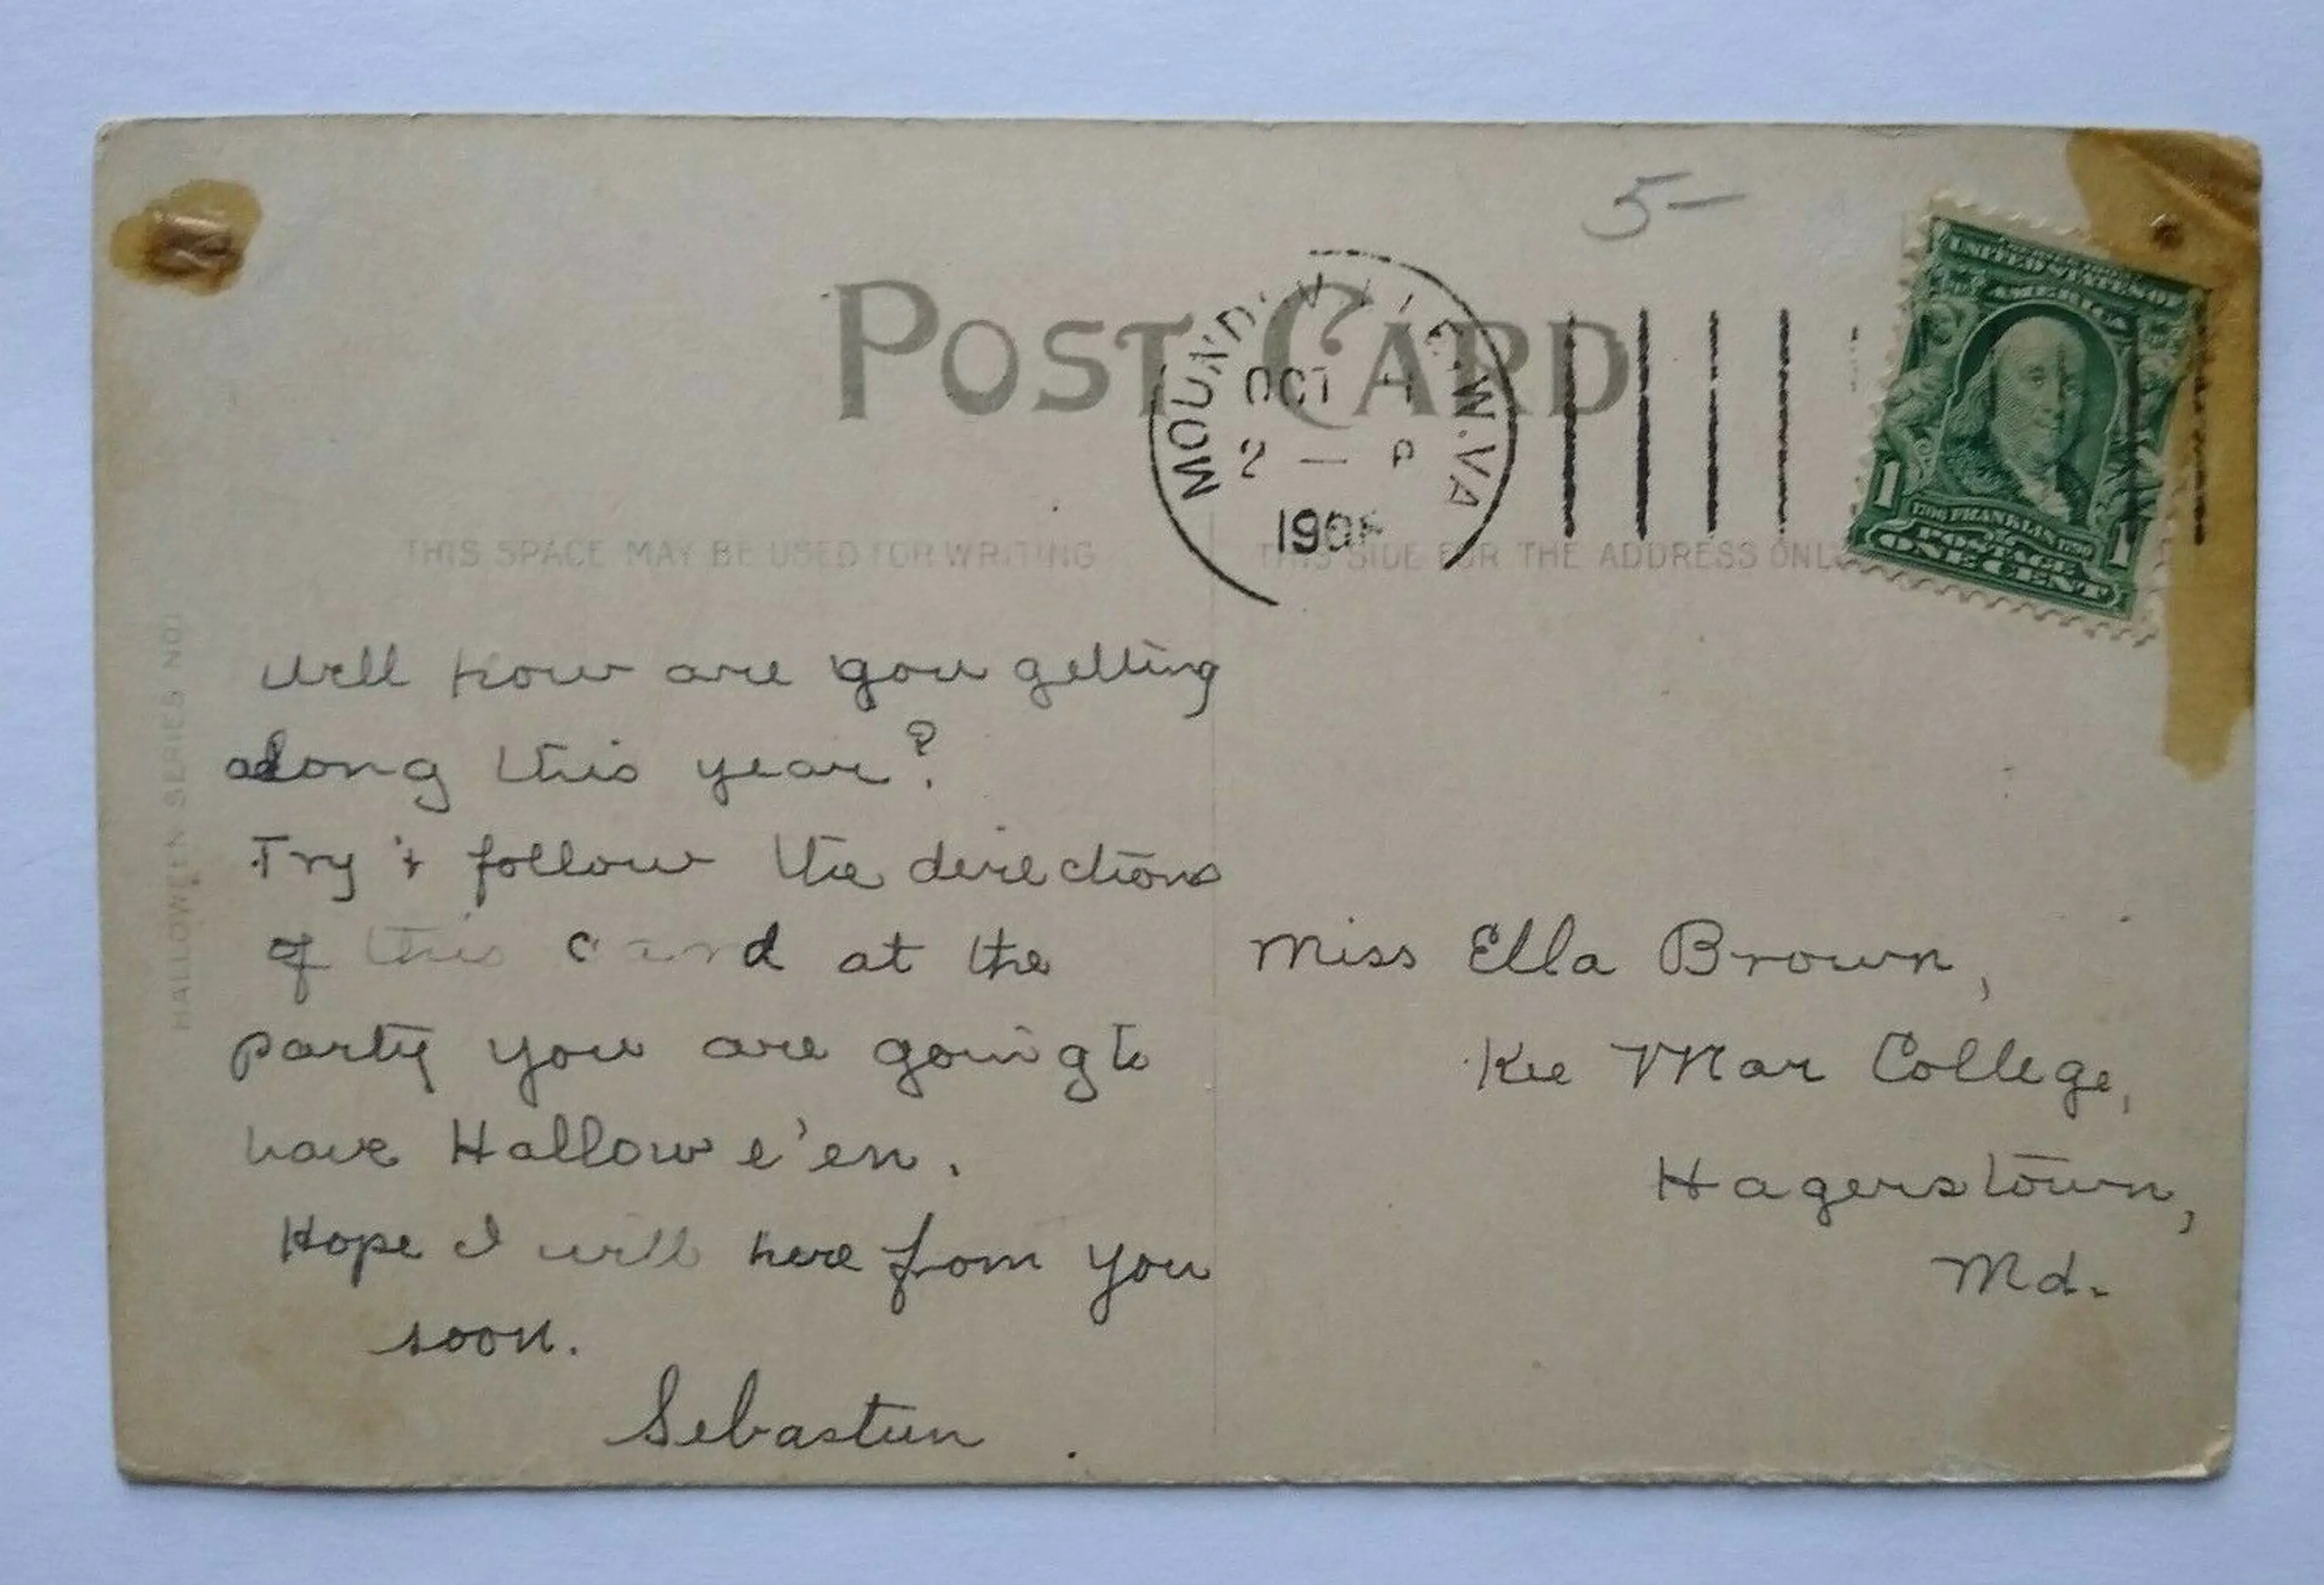 5—
POST CARD
MOUNDSVILLE, W. VA
OCT
2 — P
THIS SPACE MAY BE USED FOR WRITING
THIS SIDE FOR THE ADDRESS ONLY
UNITED STATES OF
AMERICA
1706 FRANKLIN 1790
POSTAGE
1 ONE CENT 1
HALLOWE'EN SERIES NO1
Well how are you getting
along this year?
Try & follow the directions
of this card at the
party you are going to
have Hallowe'en.
Hope I will here from you
soon.
Sebastien
Miss Ella Brown,
Kee Mar College,
Hagerstown,
Md.